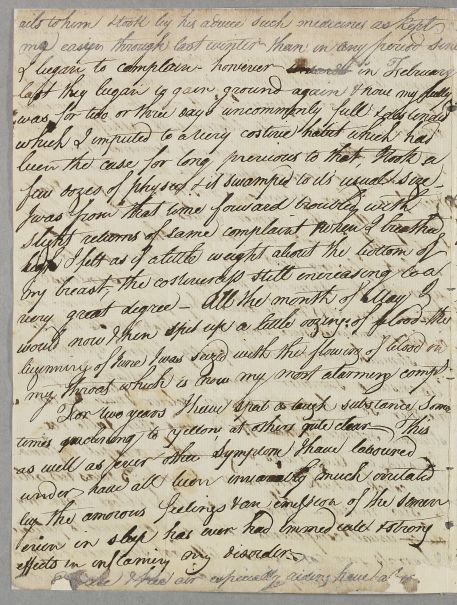 ails to him I took by his advice such medicines as kept
me easyer through last winter than in any period since
I began to complain - however in February
last they began to gain ground again & now my belly
was for two or three days uncommonly full
which I imputed to a very costive habit which had
been the case for long previous to that, I took a
few dozes of physic & it swamped to its usual size -
I was from that time forward troubled with
slight returns of same complaint & when I breathe
I felt as if a little weight about the bottom of
my breast, the costiveness still encreasing to a
very great degree - All the month of May I
would now & then spit up a little oozing of blood - the
beginning of June I was seized with the flowing of blood in
my throat which is now my most alarming compl-
For two years I have spat a tough substance some
times to yellow at others quite clear - This
as well as ever other symptom I have laboured
under have all been much irritated
by the amorous feelings & an emission of the semen
even in sleep has ever had immediate & strong
effects in inflaming my disorder -
& free air especially riding have